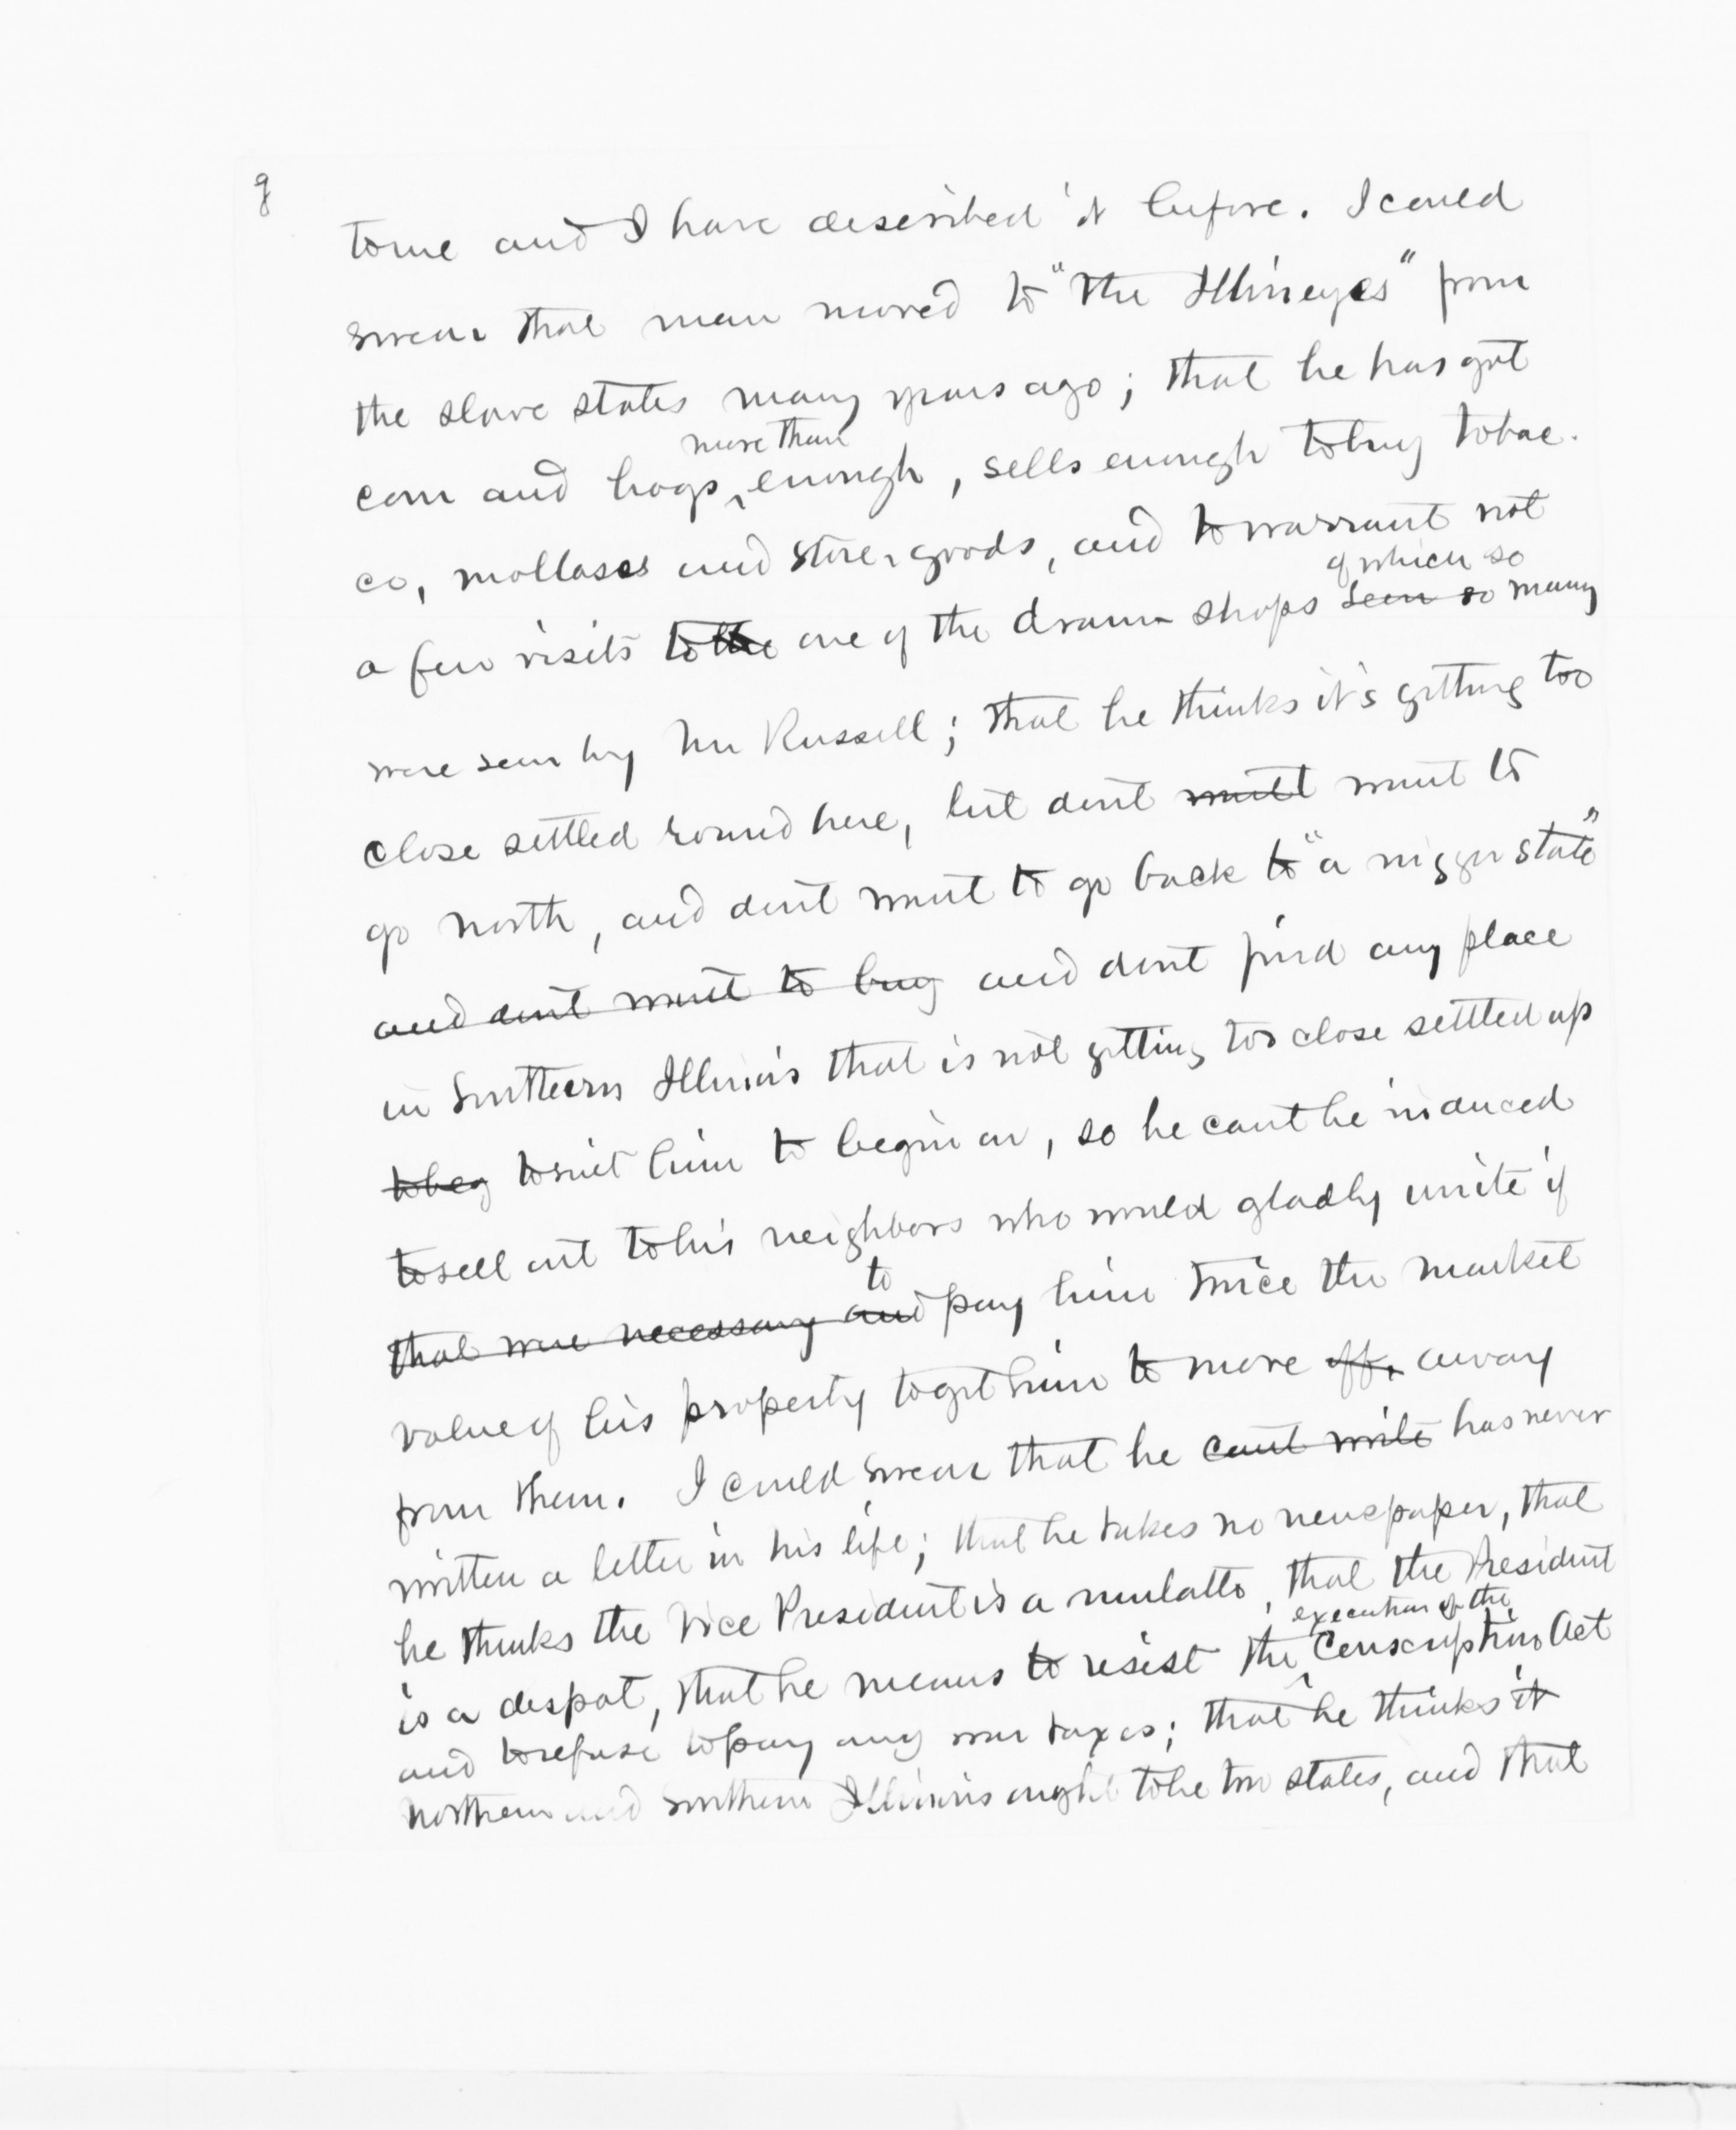 9
to me and I have described it before. I could
swear that man moved to "the Illineyes" from
the slave states many years ago; that he has got
more than
corn and hogs, enough, sells enough to buy tobac-
co, mollases and store-goods, and to warrant not
of which so
a few visits to the one of the dram shops seen so many
were seen by Mr Russell; that he thinks it's getting too
close settled round here, but dont want want to
go north, and dont want to go back to "a nigger state"
and dont want to buy and dont find any place
in Southern Illinois that is not getting too close settled up
to beg to suit him to begin on, so he cant be induced
to sell out to his neighbors who would gladly unite if
to
that were necessary and pay him twice the market
value of his property to get him to move off, away
from them. I could swear that he cant write has never
written a letter in his life; that he takes no newspaper, that
he thinks the Vice President is a mulatto, that the President
execution of the
is a despot, that he means to resist the Conscription Act
and to refuse to pay any war taxes; that he thinks it
northern and southern Illinois ought to be two states, and that